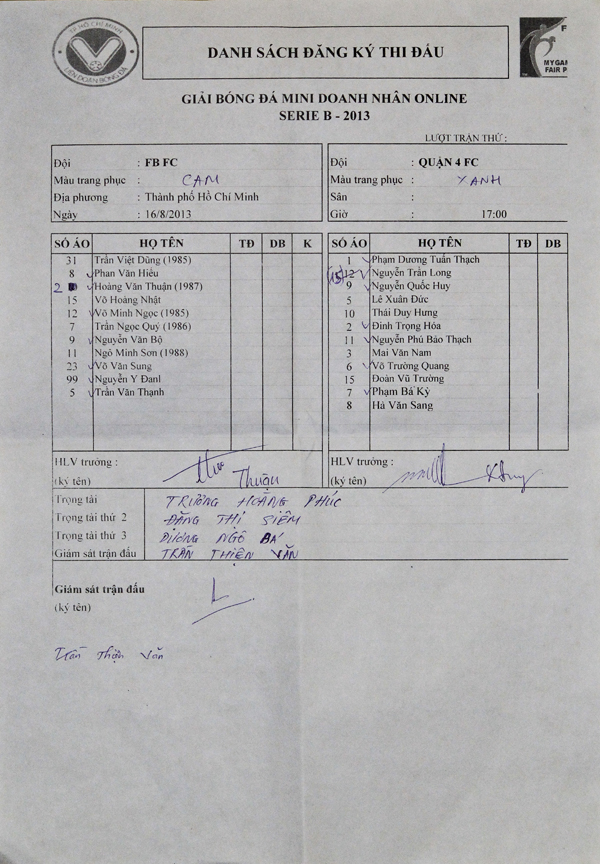 TP HỒ CHÍ MINH
LIÊN ĐOÀN BÓNG ĐÁ
DANH SÁCH ĐĂNG KÝ THI ĐẤU
F
MYGAM
FAIR P
GIẢI BÓNG ĐÁ MINI DOANH NHÂN ONLINE
SERIE B - 2013
LƯỢT TRẬN THỨ :
Đội : FB FC
Màu trang phục : CAM
Địa phương : Thành phố Hồ Chí Minh
Ngày : 16/8/2013
Đội : QUẬN 4 FC
Màu trang phục : XANH
Sân :
Giờ : 17:00
SỐ ÁO HỌ TÊN TĐ DB K
31 Trần Việt Dũng (1985)
8 Phan Văn Hiếu
2 Hoàng Văn Thuận (1987)
15 Võ Hoàng Nhật
12 Võ Minh Ngọc (1985)
7 Trần Ngọc Quý (1986)
9 Nguyễn Văn Bộ
11 Ngô Minh Sơn (1988)
23 Võ Văn Sung
99 Nguyễn Y Đanl
5 Trần Văn Thạnh
SỐ ÁO HỌ TÊN TĐ DB
1 Phạm Dương Tuấn Thạch
(15) 12 Nguyễn Trần Long
9 Nguyễn Quốc Huy
5 Lê Xuân Đức
10 Thái Duy Hưng
2 Đinh Trọng Hóa
11 Nguyễn Phú Bảo Thạch
3 Mai Văn Nam
6 Võ Trường Quang
15 Đoàn Vũ Trường
7 Phạm Bá Kỳ
8 Hà Văn Sang
HLV trưởng :
(ký tên) Thuận
HLV trưởng :
(ký tên)
Trọng tài TRƯƠNG HOÀNG PHÚC
Trọng tài thứ 2 ĐẶNG THỊ SIÊM
Trọng tài thứ 3 DƯƠNG NGÔ BÁ
Giám sát trận đấu TRẦN THIÊN VĂN
Giám sát trận đấu
(ký tên)
Trần Thiện Văn